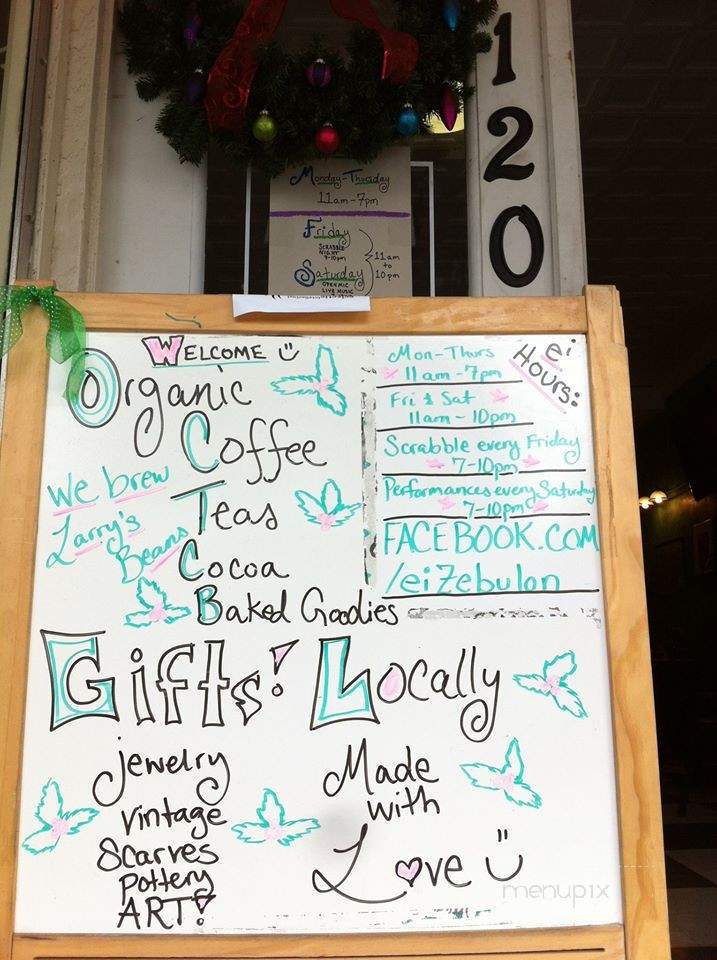 120
Monday-Thursday
11am-7pm
Friday
SCRABBLE
NIGHT!
7-10pm
Saturday
OPEN MIC
LIVE MUSIC
11am
to
10pm
WELCOME
Organic
Coffee
Teas
Cocoa
Baked Goodies
We brew
Larry's
Beans
ei
Hours:
Mon-Thurs
11am-7pm
Fri & Sat
11am - 10pm
Scrabble every Friday
7-10pm
Performances every Saturday
7-10pm
FACEBOOK.COM
/eiZebulon
Gifts! Locally
Jewelry
Vintage
Scarves
Pottery
ART!
Made
with
Love
menupix